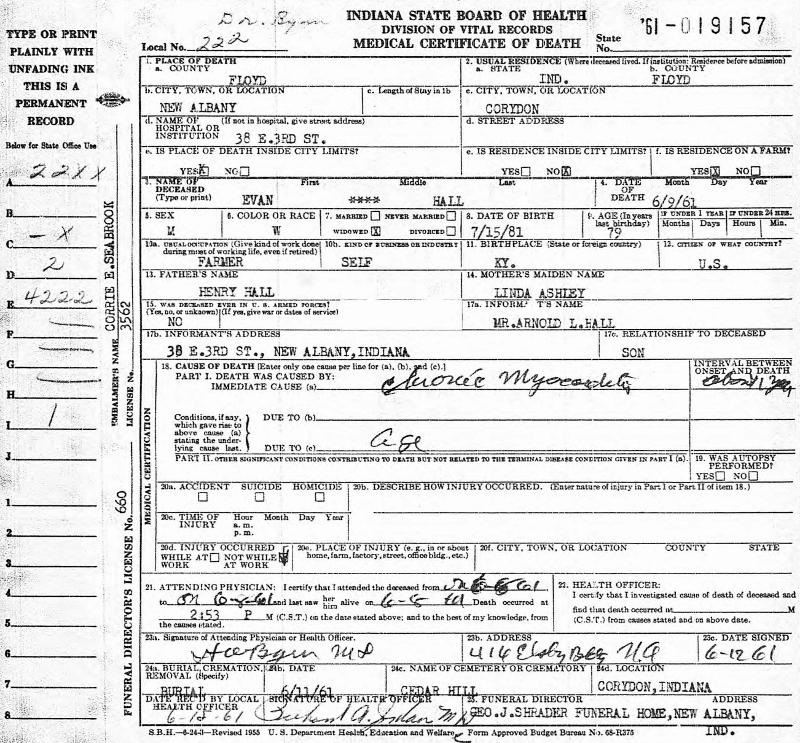 Dr. Byrn
INDIANA STATE BOARD OF HEALTH
DIVISION OF VITAL RECORDS
MEDICAL CERTIFICATE OF DEATH
Local No. 222
State No. '61-019157
TYPE OR PRINT
PLAINLY WITH
UNFADING INK
THIS IS A
PERMANENT
RECORD
Below for State Office Use
A 22XX
B
C -X
D 2
E 4222
F
G
H
I 1
J
1
2
3
4
5
6
7
8
EMBALMER'S NAME CORRIE E. SEABROOK
LICENSE No. 3562
FUNERAL DIRECTOR'S LICENSE No. 660
MEDICAL CERTIFICATION
1. PLACE OF DEATH
a. COUNTY
FLOYD
2. USUAL RESIDENCE (Where deceased lived. If institution: Residence before admission)
a. STATE b. COUNTY
IND. FLOYD
b. CITY, TOWN, OR LOCATION c. Length of Stay in 1b
NEW ALBANY
c. CITY, TOWN, OR LOCATION
CORYDON
d. NAME OF (If not in hospital, give street address)
HOSPITAL OR
INSTITUTION 38 E.3RD ST.
d. STREET ADDRESS
e. IS PLACE OF DEATH INSIDE CITY LIMITS?
YES X NO
e. IS RESIDENCE INSIDE CITY LIMITS?
YES NO X
f. IS RESIDENCE ON A FARM?
YES X NO
3. NAME OF DECEASED (Type or print) First Middle Last
EVAN **** HALL
4. DATE OF DEATH Month Day Year
6/9/61
5. SEX
M
6. COLOR OR RACE
W
7. MARRIED NEVER MARRIED
WIDOWED X DIVORCED
8. DATE OF BIRTH
7/15/81
9. AGE (In years last birthday)
79
IF UNDER 1 YEAR IF UNDER 24 HRS.
Months Days Hours Min.
10a. USUAL OCCUPATION (Give kind of work done during most of working life, even if retired)
FARMER
10b. KIND OF BUSINESS OR INDUSTRY
SELF
11. BIRTHPLACE (State or foreign country)
KY.
12. CITIZEN OF WHAT COUNTRY?
U.S.
13. FATHER'S NAME
HENRY HALL
14. MOTHER'S MAIDEN NAME
LINDA ASHLEY
15. WAS DECEASED EVER IN U. S. ARMED FORCES?
(Yes, no, or unknown) (If yes, give war or dates of service)
NO
17a. INFORMANT'S NAME
MR.ARNOLD L.HALL
17b. INFORMANT'S ADDRESS
38 E.3RD ST., NEW ALBANY,INDIANA
17c. RELATIONSHIP TO DECEASED
SON
18. CAUSE OF DEATH [Enter only one cause per line for (a), (b), and (c).]
PART I. DEATH WAS CAUSED BY:
IMMEDIATE CAUSE (a) Chronic Myocarditis
INTERVAL BETWEEN
ONSET AND DEATH
about 1 year
Conditions, if any,
which gave rise to
above cause (a)
stating the under-
lying cause last.
DUE TO (b)
DUE TO (c) age
PART II. OTHER SIGNIFICANT CONDITIONS CONTRIBUTING TO DEATH BUT NOT RELATED TO THE TERMINAL DISEASE CONDITION GIVEN IN PART I (a).
19. WAS AUTOPSY PERFORMED?
YES NO
20a. ACCIDENT SUICIDE HOMICIDE
20b. DESCRIBE HOW INJURY OCCURRED. (Enter nature of injury in Part I or Part II of item 18.)
20c. TIME OF INJURY Hour Month Day Year
a. m.
p. m.
20d. INJURY OCCURRED
WHILE AT WORK NOT WHILE AT WORK
20e. PLACE OF INJURY (e. g., in or about home, farm, factory, street, office bldg., etc.)
20f. CITY, TOWN, OR LOCATION COUNTY STATE
21. ATTENDING PHYSICIAN: I certify that I attended the deceased from
to and last saw her him alive on Death occurred at
2:53 P M (C.S.T.) on the date stated above; and to the best of my knowledge, from
the causes stated.
22. HEALTH OFFICER:
I certify that I investigated cause of death of deceased and
find that death occurred at M
(C.S.T.) from causes and on date stated above.
23a. Signature of Attending Physician or Health Officer.
Byrn MD
23b. ADDRESS
416 Elsby Bldg N.A
23c. DATE SIGNED
6-12 61
24a. BURIAL, CREMATION, REMOVAL (Specify)
BURIAL
24b. DATE
6/11/61
24c. NAME OF CEMETERY OR CREMATORY
CEDAR HILL
24d. LOCATION
CORYDON,INDIANA
DATE REC'D BY LOCAL HEALTH OFFICER
6-15-61
SIGNATURE OF HEALTH OFFICER
25. FUNERAL DIRECTOR ADDRESS
GEO.J.SHRADER FUNERAL HOME,NEW ALBANY,
IND.
S.B.H.-6-24-3-Revised 1955 U. S. Department Health, Education and Welfare Form Approved Budget Bureau No. 68-R375